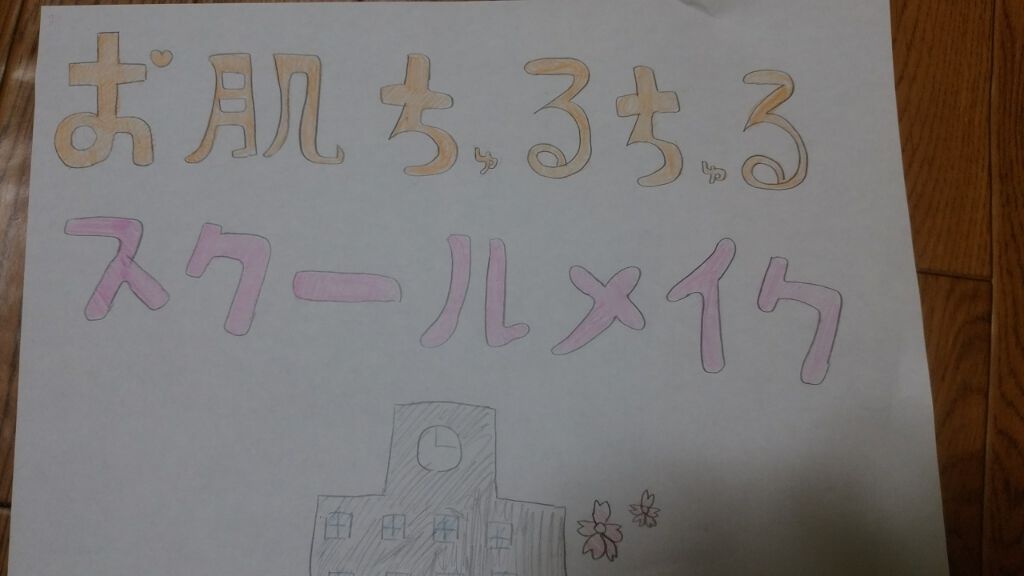 お肌ちゅるちゅる
スクールメイク